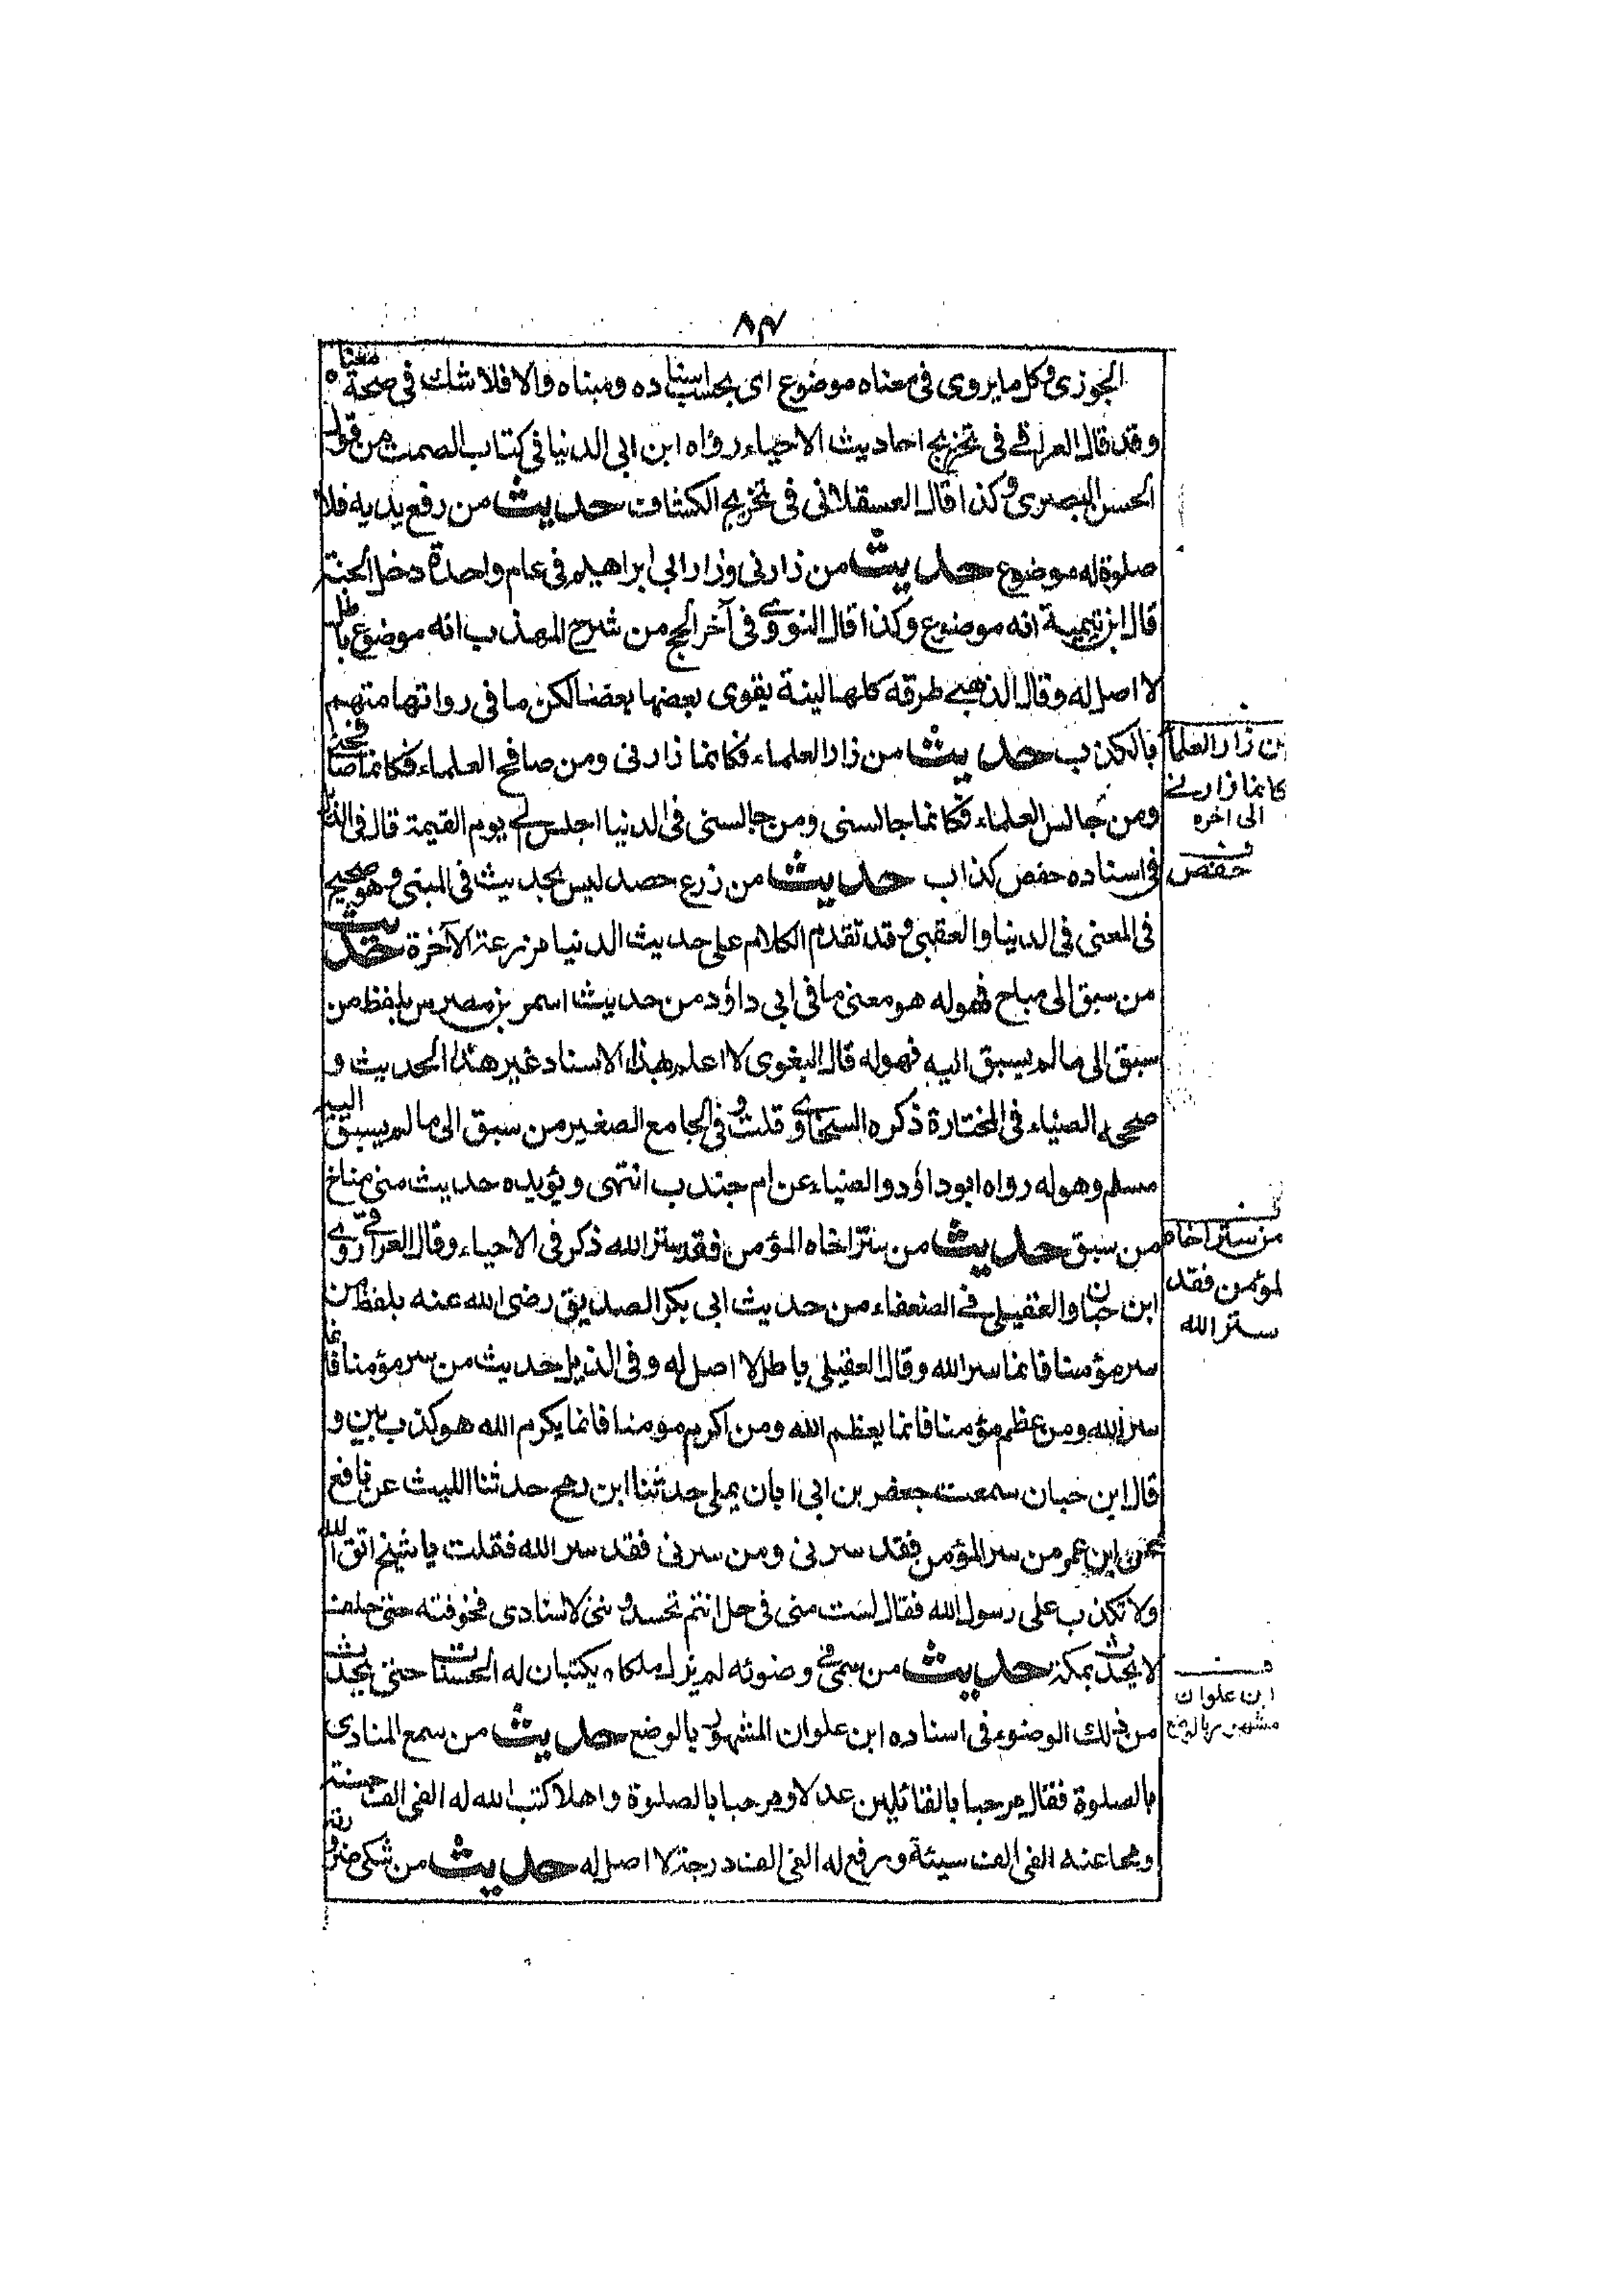 ٨٣
الجوزى وكل ما يروى فى معناه موضوع اى بحسب اسناده ومبناه والا فلا شك فى صحة معناه
وقد قال العراقے فى تخريج احاديث الاحياء رواه ابن ابى الدنيا فى كتاب الصمت من قول
الحسن البصرى وكذا قال العسقلانى فى تخريج الكشاف حديث من رفع يديه فلا
صلوة له موضوع حديث من زارنى وزار ابى ابراهيم فى عام واحدة دخل الجنة
قال ابن تيمية انه موضوع وكذا قال النووى فى آخر الحج من شرح المهذب انه موضوع باطل
لا اصل له وقال الذهبے طرقه كلها لينة يقوى بعضها بعضا لكن ما فى رواتها متهم
بالكذب حديث من زار العلماء فكانما زارنى ومن صافح العلماء فكانما صافحنى
ومن جالس العلماء فكانما جالسنى ومن جالسنى فى الدنيا اجلس لے يوم القيمة قال فى الذيل
فى اسناده حفص كذاب حديث من زرع حصد ليس بحديث فى المبنى وهو صحيح
فى المعنى فى الدنيا والعقبى وقد تقدم الكلام على حديث الدنيا مزرعة الآخرة حديث
من سبق الى مباح فهو له هو معنى ما فى ابى داؤد من حديث اسمر بن مضرس بلفظ من
سبق الى ما لم يسبق اليه فهو له قال البغوى لا اعلم بهذا الاسناد غير هذا الحديث و
صححه الضياء فى المختارة ذكره السخاوى قلت وفى الجامع الصغير من سبق الى ما لم يسبق اليه
مسلم وهو له رواه ابو داؤد والضياء عن ام جندب انتهى ويؤيده حديث منى مناخ
من سبق حديث من ستر اخاه المؤمن فقد ستر الله ذكر فى الاحياء وقال العراقى روى
ابن حبان والعقيلى فے الضعفاء من حديث ابى بكر الصديق رضى الله عنه بلفظ من
سر مؤمنا فانما سر الله وقال العقيلى باطل لا اصل له وفى الذيل حديث من سر مؤمنا فانما
سر الله ومن عظم مؤمنا فانما يعظم الله ومن اكرم مومنا فانما يكرم الله هو كذب بين و
قال ابن حبان سمعت جعفر بن ابى ابان يملى حدثنا ابن رمح حدثنا الليث عن نافع
عن ابن عمر من سر المؤمن فقد سرنى ومن سرنى فقد سر الله فقلت يا شيخ اتق الله
ولا تكذب على رسول الله فقال لست منى فى حل انتم تحسدوننى لاسنادى فخوفته حتى حلف
لا يحدث بمكة حديث من سمى فى وضوئه لم يزل ملكاه يكتبان له الحسنات حتى يحدث
من ذلك الوضوء فى اسناده ابن علوان المشهور بالوضع حديث من سمع المنادى
بالصلوة فقال مرحبا بالقائلين عدلا ومرحبا بالصلوة واهلا كتب الله له الفى الف حسنة
ومحا عنه الفى الف سيئة ورفع له الفى الف درجة لا اصل له حديث من شكى ضرورته
من زار العلما
كانما زارنے
الى اخره
حفص
من ستر اخاه
لمؤمن فقد
ستر الله
ابن علوان
مشهور بالوضع